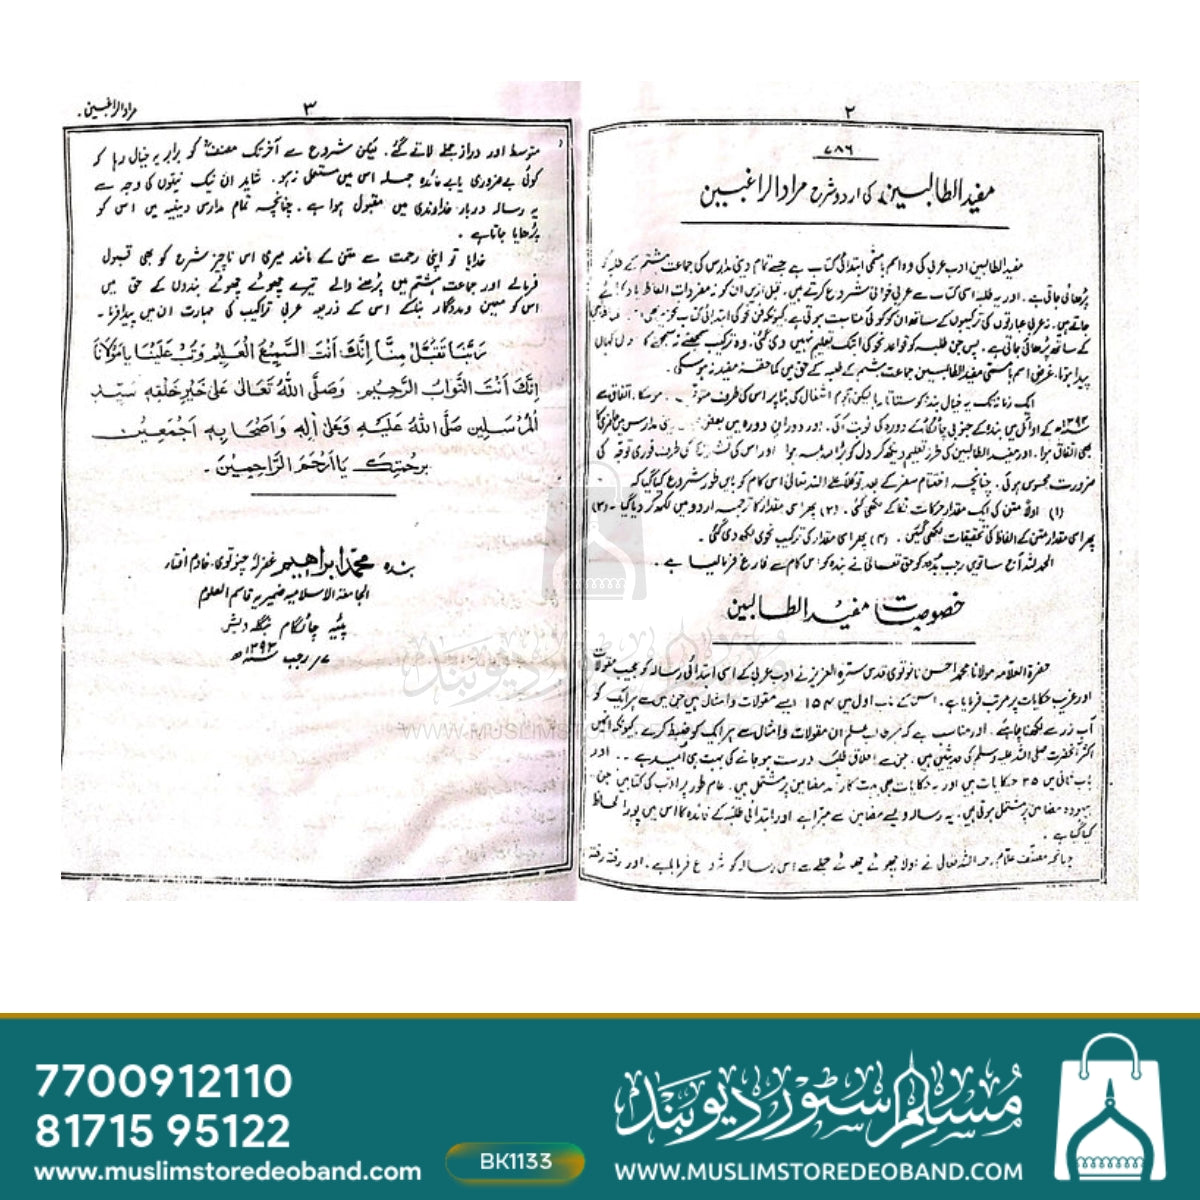 ۲
۷۸۶
مفید الطالبین کی اردو شرح مراد الراغبین
مفید الطالبین ادب عربی کی وہ اہم باسمٰی ابتدائی کتاب ہے جسے تمام دینی مدارس کی جماعت ہشتم کے طلبہ کو
پڑھائی جاتی ہے۔ اور یہ طلبہ اسی کتاب سے عربی خوانی شروع کرتے ہیں۔ قبل ازیں ان کو نہ مفردات الفاظ یاد کرائے
جاتے ہیں۔ نہ عربی عبارتوں کی ترکیبوں کے ساتھ ان کو کوئی مناسبت ہوتی ہے کیونکہ فن نحو کی ابتدائی کتاب
کے ساتھ پڑھائی جاتی ہے۔ پس جن طلبہ کو قواعد نحو کی اب تک تعلیم نہیں دی گئی۔ وہ ترکیب سمجھتے نہ سمجھنے کا
پیدا ہوتا، غرض اسم باسمٰی مفید الطالبین جماعت ہشتم کے طلبہ کے حق میں کما حقہ مفید نہ ہو سکی۔
ایک زمانہ تک یہ خیال بندہ کو ستاتا رہا لیکن ہجوم اشغال کی بنا پر اس کی طرف
۱۳۹۳ھ کے اوائل میں بندہ کے جنوبی چاٹگام کے دورہ کی نوبت آئی۔ اور دوران دورہ میں بعض
بھی اتفاق ہوا۔ اور مفید الطالبین کی طرز تعلیم دیکھ کر دل کو بڑا صدمہ ہوا اور اس کی
ضرورت محسوس ہوئی۔ چنانچہ اختتام سفر کے بعد توکلاً علی اللہ تعالیٰ اس کام کو بایں طور شروع کیا گیا کہ
(۱) اولاً متن کی ایک مقدار حرکات لگا کے لکھی گئی۔ (۲) پھر اسی مقدار کا ترجمہ اردو میں لکھ کر دیا گیا۔ (۳)
پھر اسی مقدار متن کے الفاظ کی تحقیقات لکھی گئیں۔ (۴) پھر اسی مقدار کی ترکیب نحوی لکھ دی گئی۔
الحمد للہ آج ساتویں رجب بدھ کو حق تعالیٰ نے بندہ کو اس کام سے فارغ فرما لیا ہے۔
خصوصیات مفید الطالبین
حضرۃ العلامہ مولانا محمد احسن نانوتوی قدس سرہ العزیز نے ادب عربی کے اسی ابتدائی رسالہ کو عجیب مقولات
اور غریب حکایات پر مرتب فرمایا ہے۔ اس کے باب اول میں ۱۵۴ ایسے مقولات و امثال ہیں جن میں سے ہر ایک کو
آب زر سے لکھنا چاہئے۔ اور مناسب ہے کہ ان مقولات و امثال سے ہر ایک کو ضبط کرے۔ کیونکہ انمیں
اکثر آنحضرت صلی اللہ علیہ وسلم کی حدیثیں ہیں۔ جن سے اخلاق طلبہ درست ہو جانے کی بہت بڑی امید ہے۔ اور
باب ثانی میں ۳۵ حکایات ہیں اور یہ حکایات بھی بہت کارآمد مضامین پر مشتمل ہیں۔ عام طور پر ادب کی کتابیں جن
بیہودہ مضامین پر مشتمل ہوتی ہیں۔ یہ رسالہ ویسے مضامین سے مبرا ہے اور ابتدائی طلبہ کے فائدہ کا اس میں پورا لحاظ
کیا گیا ہے۔
چنانچہ مصنف علام رحمہ اللہ تعالیٰ نے اولاً چھوٹے چھوٹے جملے سے اس رسالہ کو شروع فرمایا ہے۔ اور رفتہ رفتہ
۳
مراد الراغبین۔
متوسط اور دراز جملے لائے گئے۔ لیکن شروع سے آخر تک مصنفؒ کو برابر یہ خیال رہا کہ
کوئی بے ضروری یا بے فائدہ جملہ اس میں مستعمل نہ ہو۔ شاید ان نیک نیتوں کی وجہ سے
یہ رسالہ دربار خداوندی میں مقبول ہوا ہے۔ چنانچہ تمام مدارس دینیہ میں اس کو
پڑھایا جاتا ہے۔
خدایا تو اپنی رحمت سے متن کے مانند میری اس ناچیز شرح کو بھی قبول
فرمالے اور جماعت ہشتم میں پڑھنے والے تیرے چھوٹے چھوٹے بندوں کے حق میں
اس کو معین و مددگار بنا کے اس کے ذریعہ عربی تراکیب کی مہارت ان میں پیدا فرما۔
رَبَّنَا تَقَبَّلْ مِنَّا اِنَّكَ اَنْتَ السَّمِيْعُ الْعَلِيْمُ وَتُبْ عَلَيْنَا يَا مَوْلَانَا
اِنَّكَ اَنْتَ التَّوَّابُ الرَّحِيْمُ۔ وَصَلَّى اللّٰهُ تَعَالٰى عَلٰى خَيْرِ خَلْقِهٖ سَيِّدِ
الْمُرْسَلِيْنَ صَلَّى اللّٰهُ عَلَيْهِ وَعَلٰى اٰلِهٖ وَاَصْحَابِهٖ اَجْمَعِيْنَ
بِرَحْمَتِكَ يَا اَرْحَمَ الرَّاحِمِيْنَ۔
بندہ محمد ابراہیم غفرلہ چنوتوی۔ خادم افتاء
الجامعۃ الاسلامیہ ضمیریہ قاسم العلوم
پٹیہ چاٹگام بنگلہ دیش
۷/ رجب ۱۳۹۳ھ
مسلم سٹور دیوبند
WWW.MUSLIMSTOREDEOBAND.COM
7700912110
81715 95122
www.muslimstoredeoband.com
BK1133
مسلم سٹور دیوبند
WWW.MUSLIMSTOREDEOBAND.COM